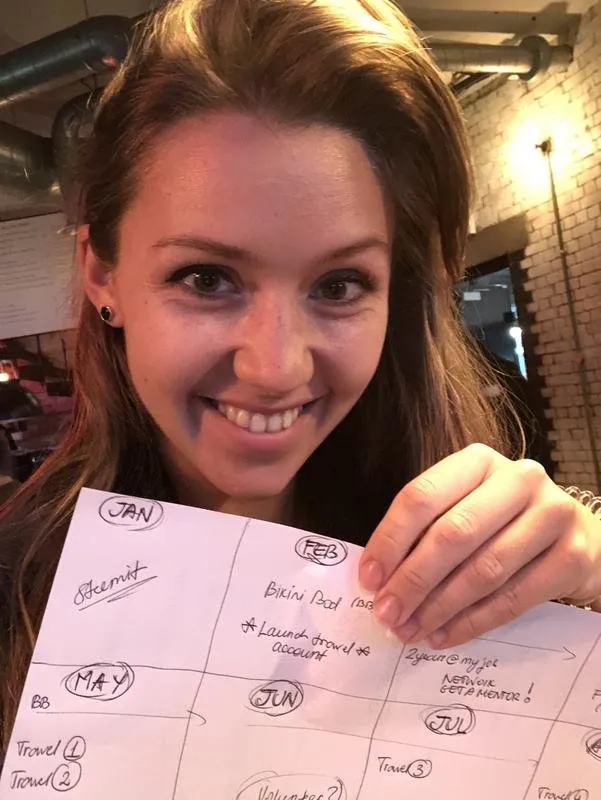 JAN
Steemit
FEB
Bikini Bod (BB
*Launch travel*
account
2years@myjob
NETWORK
GET A MENTOR!
MAY
BB
Travel ①
Travel ②
JUN
Volunteer?
JUL
Travel ③
Travel